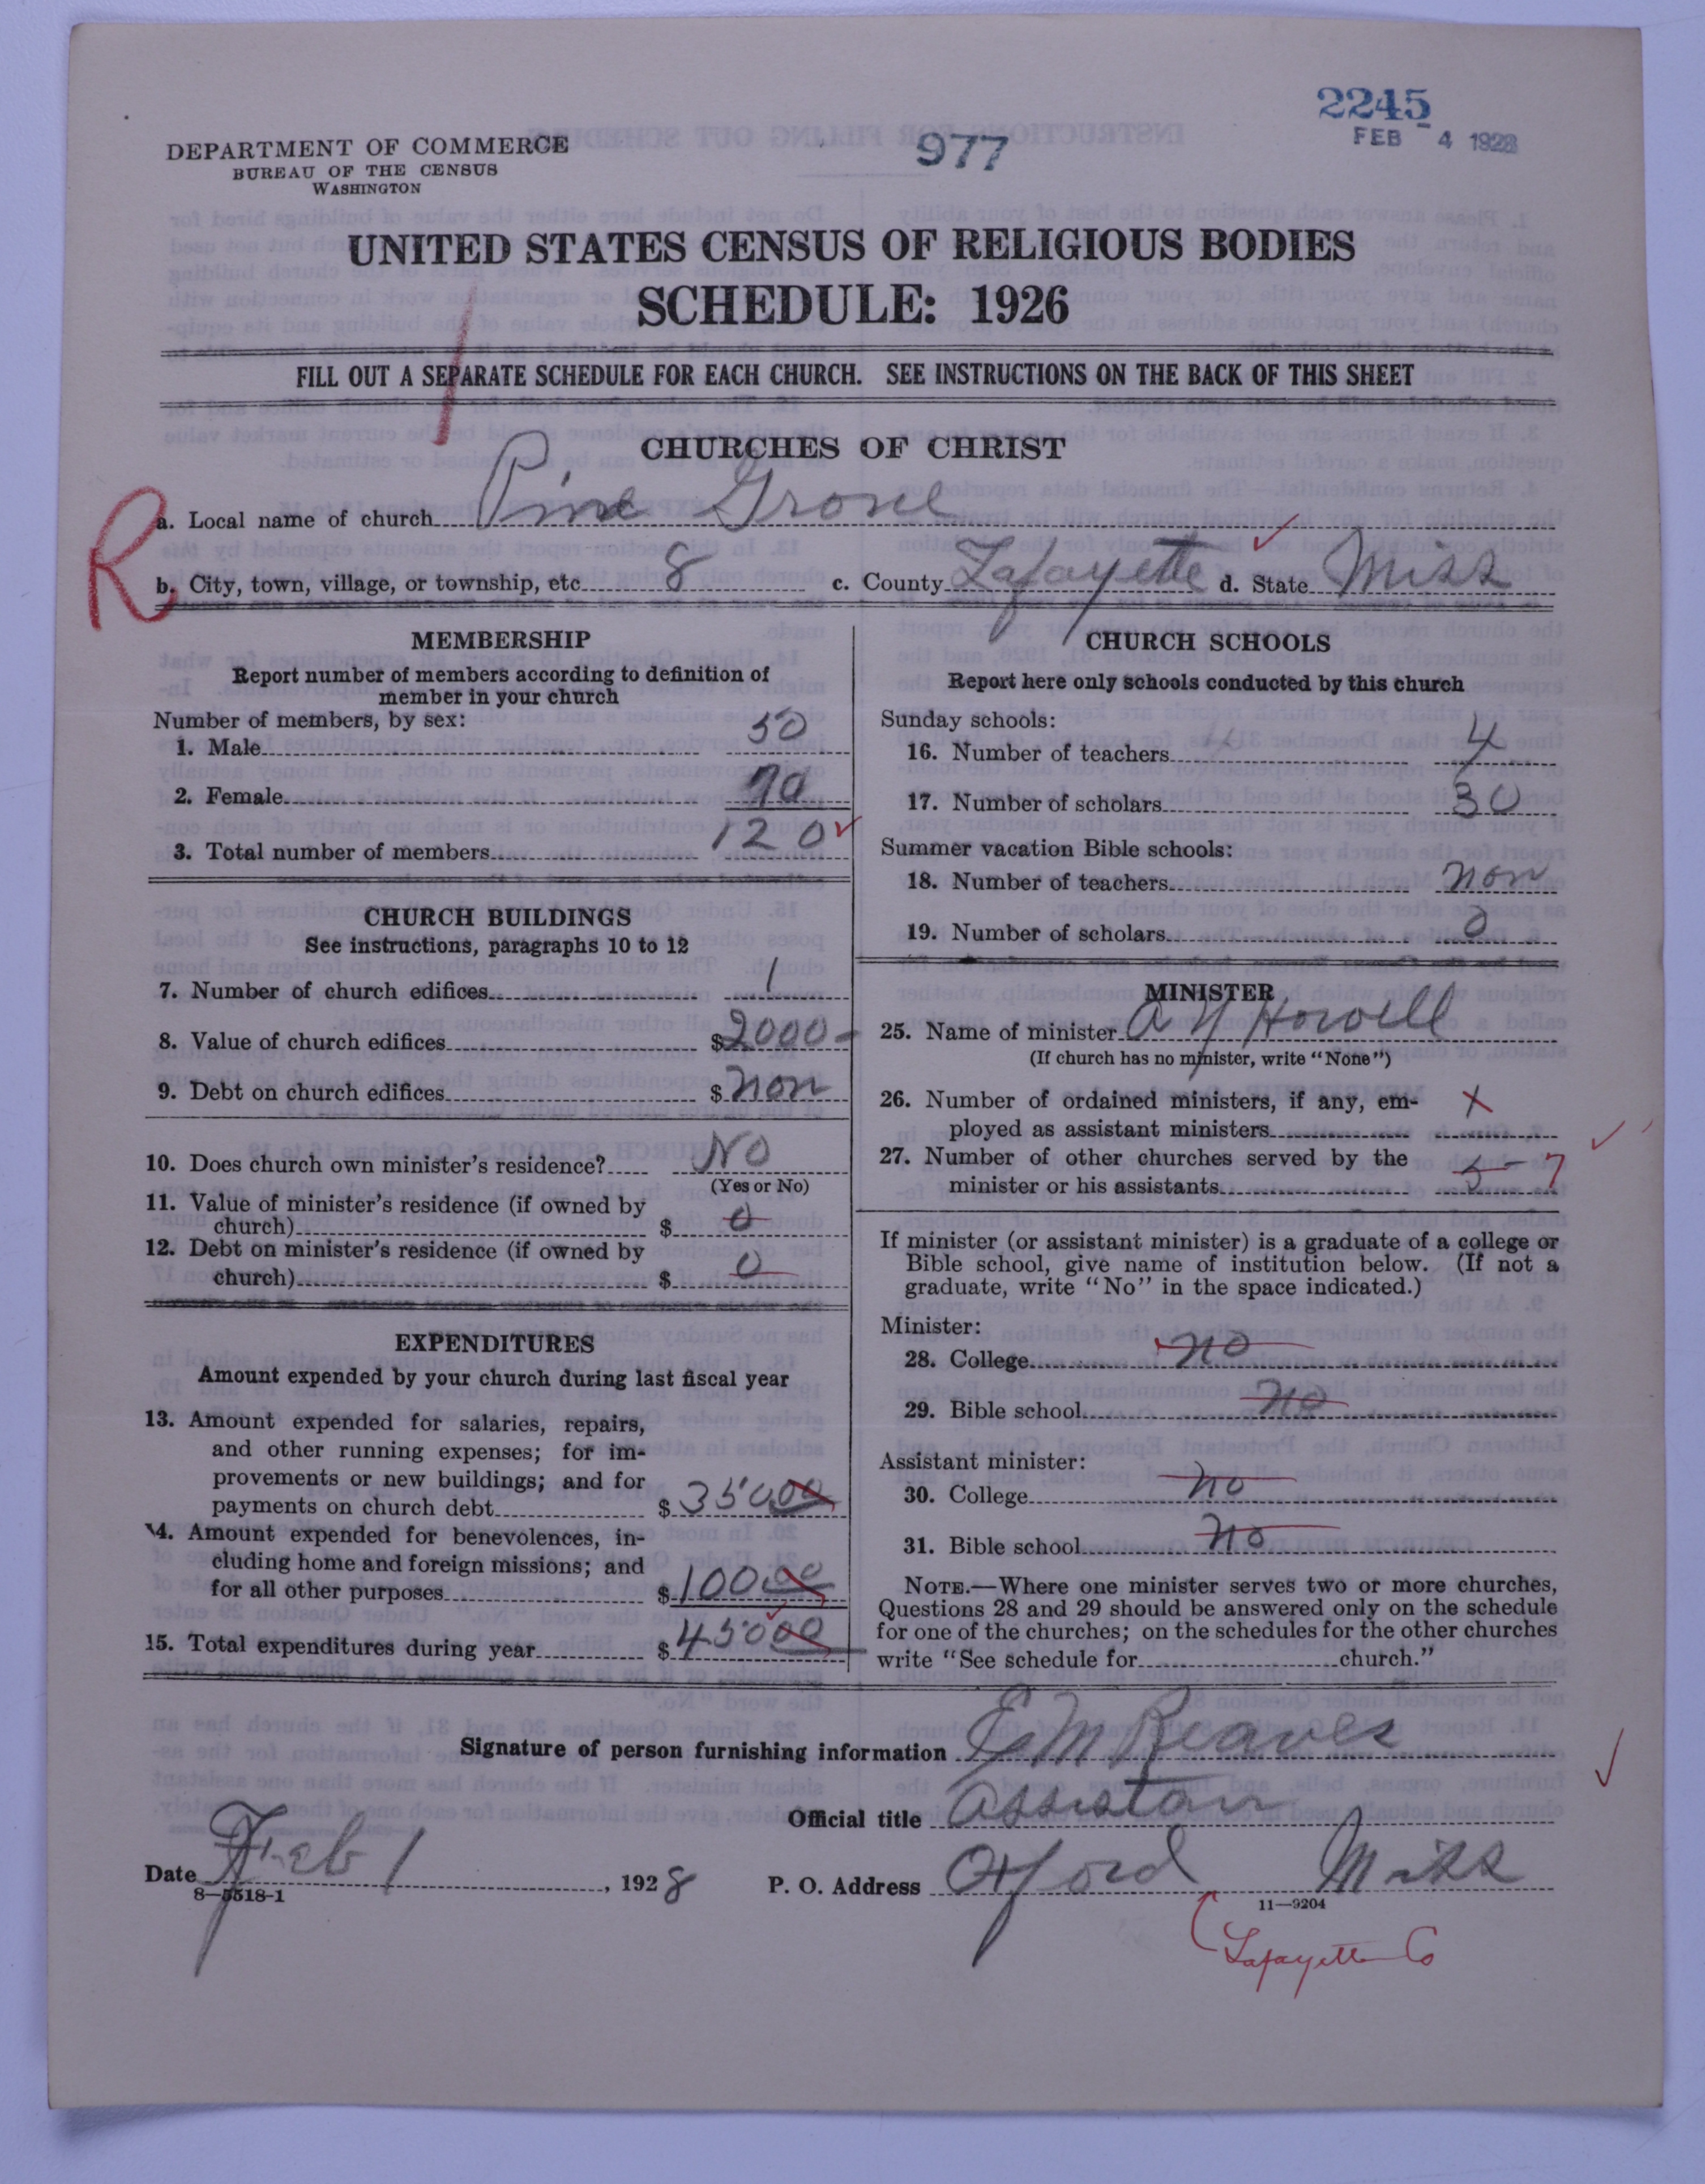 2245
FEB - 4 1928
977
DEPARTMENT OF COMMERCE
BUREAU OF THE CENSUS
WASHINGTON
UNITED STATES CENSUS OF RELIGIOUS BODIES
SCHEDULE: 1926
FILL OUT A SEPARATE SCHEDULE FOR EACH CHURCH. SEE INSTRUCTIONS ON THE BACK OF THIS SHEET
CHURCHES OF CHRIST
R
a. Local name of church Pine Grove
b. City, town, village, or township, etc. 8 c. County Lafayette d. State Miss
MEMBERSHIP
Report number of members according to definition of
member in your church
Number of members, by sex:
1. Male 50
2. Female 70
3. Total number of members 120
CHURCH BUILDINGS
See instructions, paragraphs 10 to 12
7. Number of church edifices 1
8. Value of church edifices $2000-
9. Debt on church edifices $ non
10. Does church own minister's residence? No
(Yes or No)
11. Value of minister's residence (if owned by
church) $ 0
12. Debt on minister's residence (if owned by
church) $ 0
EXPENDITURES
Amount expended by your church during last fiscal year
13. Amount expended for salaries, repairs,
and other running expenses; for im-
provements or new buildings; and for
payments on church debt $ 35000
14. Amount expended for benevolences, in-
cluding home and foreign missions; and
for all other purposes $ 100.00
15. Total expenditures during year $ 45000
CHURCH SCHOOLS
Report here only schools conducted by this church
Sunday schools:
16. Number of teachers 4
17. Number of scholars 30
Summer vacation Bible schools:
18. Number of teachers non
19. Number of scholars 0
MINISTER
25. Name of minister A Y Howell
(If church has no minister, write "None")
26. Number of ordained ministers, if any, em-
ployed as assistant ministers X
27. Number of other churches served by the
minister or his assistants 5-7
If minister (or assistant minister) is a graduate of a college or
Bible school, give name of institution below. (If not a
graduate, write "No" in the space indicated.)
Minister:
28. College no
29. Bible school no
Assistant minister:
30. College no
31. Bible school no
NOTE.—Where one minister serves two or more churches,
Questions 28 and 29 should be answered only on the schedule
for one of the churches; on the schedules for the other churches
write "See schedule for church."
Signature of person furnishing information E M Reaves
Official title Assistan
Date Feb 1, 1928 P. O. Address Oxford Miss
8-5518-1
11-9204
Lafayette Co